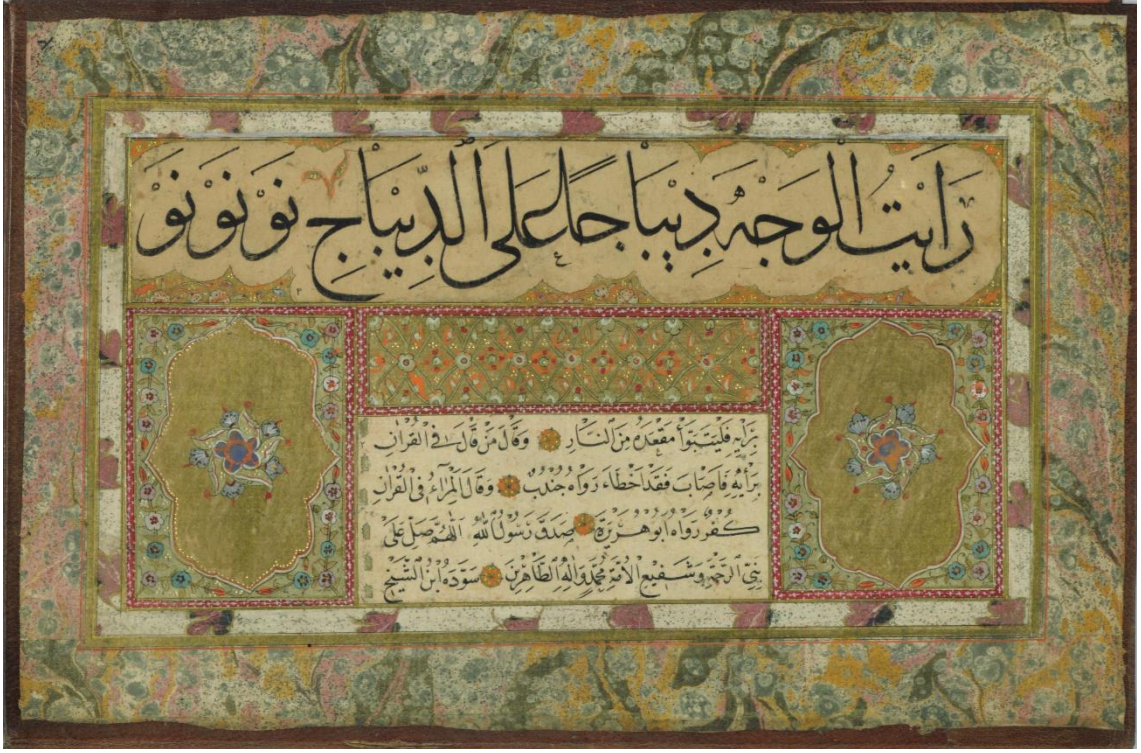 رَايَتُ الْوَجْهَ دِيبَاجًا عَلَى الدِّيبَاجِ نَوْ نَوْ نَوْ
بِرَأيِهِ فَليَتَبَوَّأ مَقعَدَهُ مِنَ النَّارِ وَقَالَ مَنْ قَالَ فِي القُرْاٰنِ
بِرَأيِهِ فَاَصَابَ فَقَدْ اَخْطَاءَ رَوَاهُ جُنْدُبٌ وَقَالَ المِرَاءُ فِي القُرْاٰنِ
كُفْرٌ رَوَاهُ اَبُو هُرَيْرَةَ صَدَقَ رَسُولُ اللّٰهِ اَللّٰهُمَّ صَلِّ عَلٰى
نَبِيِّ الرَّحْمَةِ وَشَفِيعِ الْاُمَّةِ مُحَمَّدٍ وَاٰلِهِ الطَّاهِرِينَ سَوَّدَهُ ابْنُ الشَّيْخِ